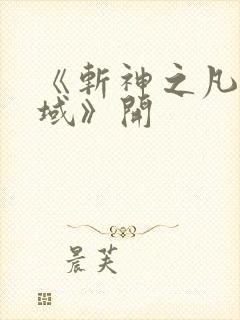 《斬神之凡
域》開
晨芙